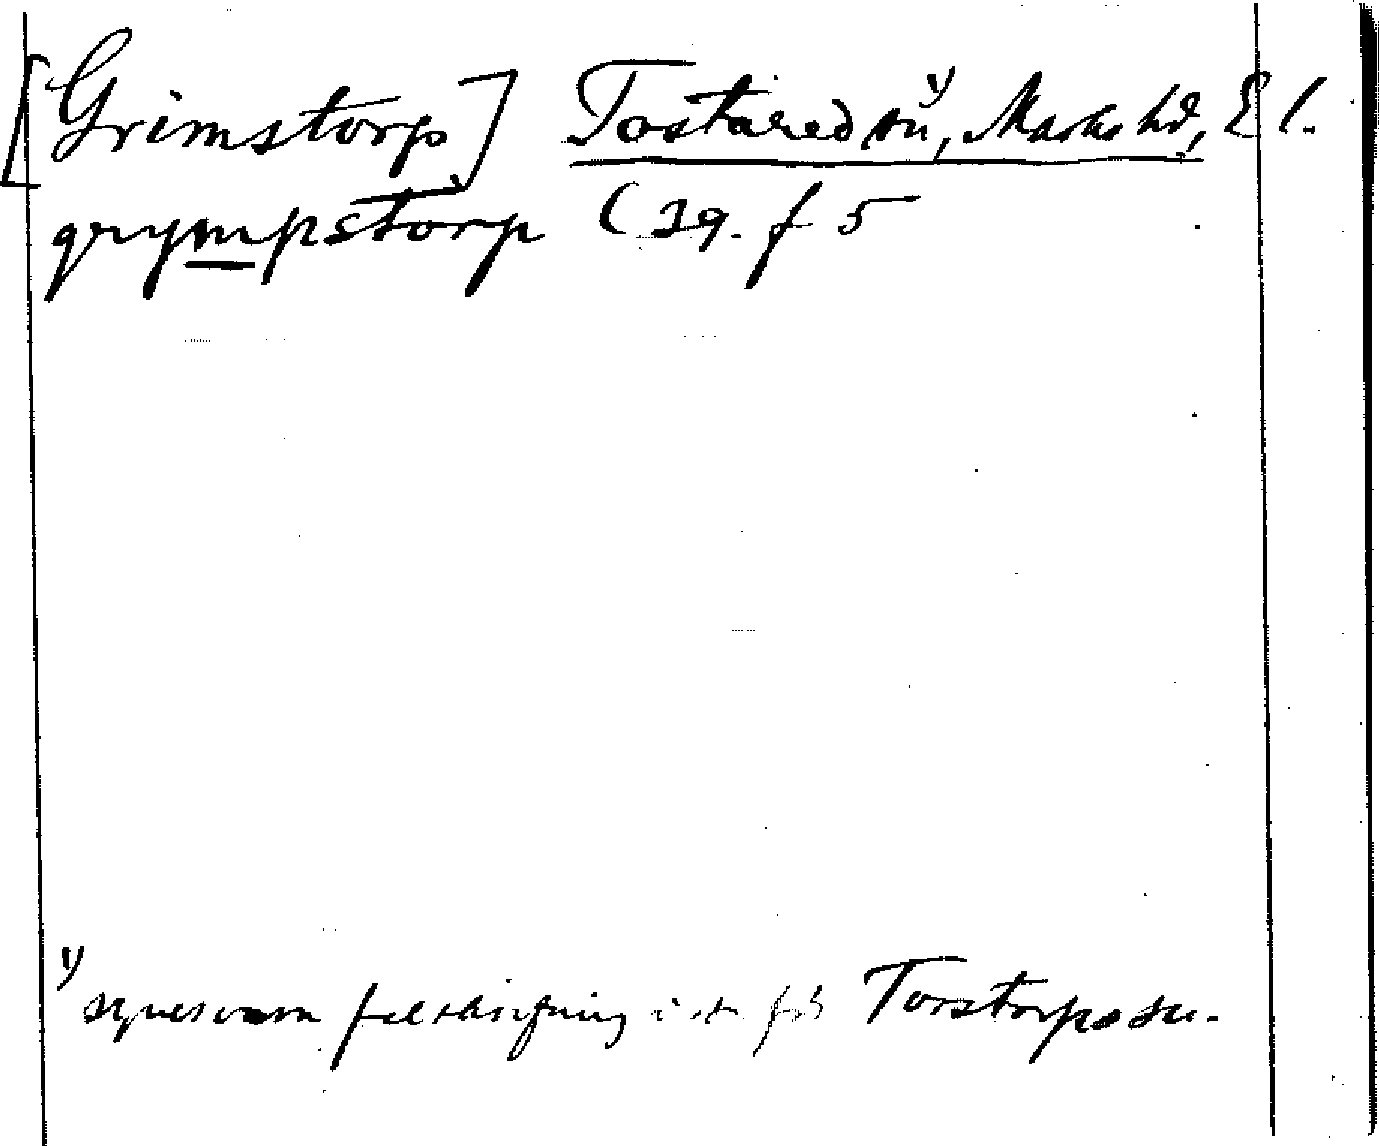 [Grimstorp] Tostared sn¹⁾, Marks hd, Äl.
grympstorp C 39. f 5
¹⁾ synes vara felskrifning i st. för Torstorps sn.